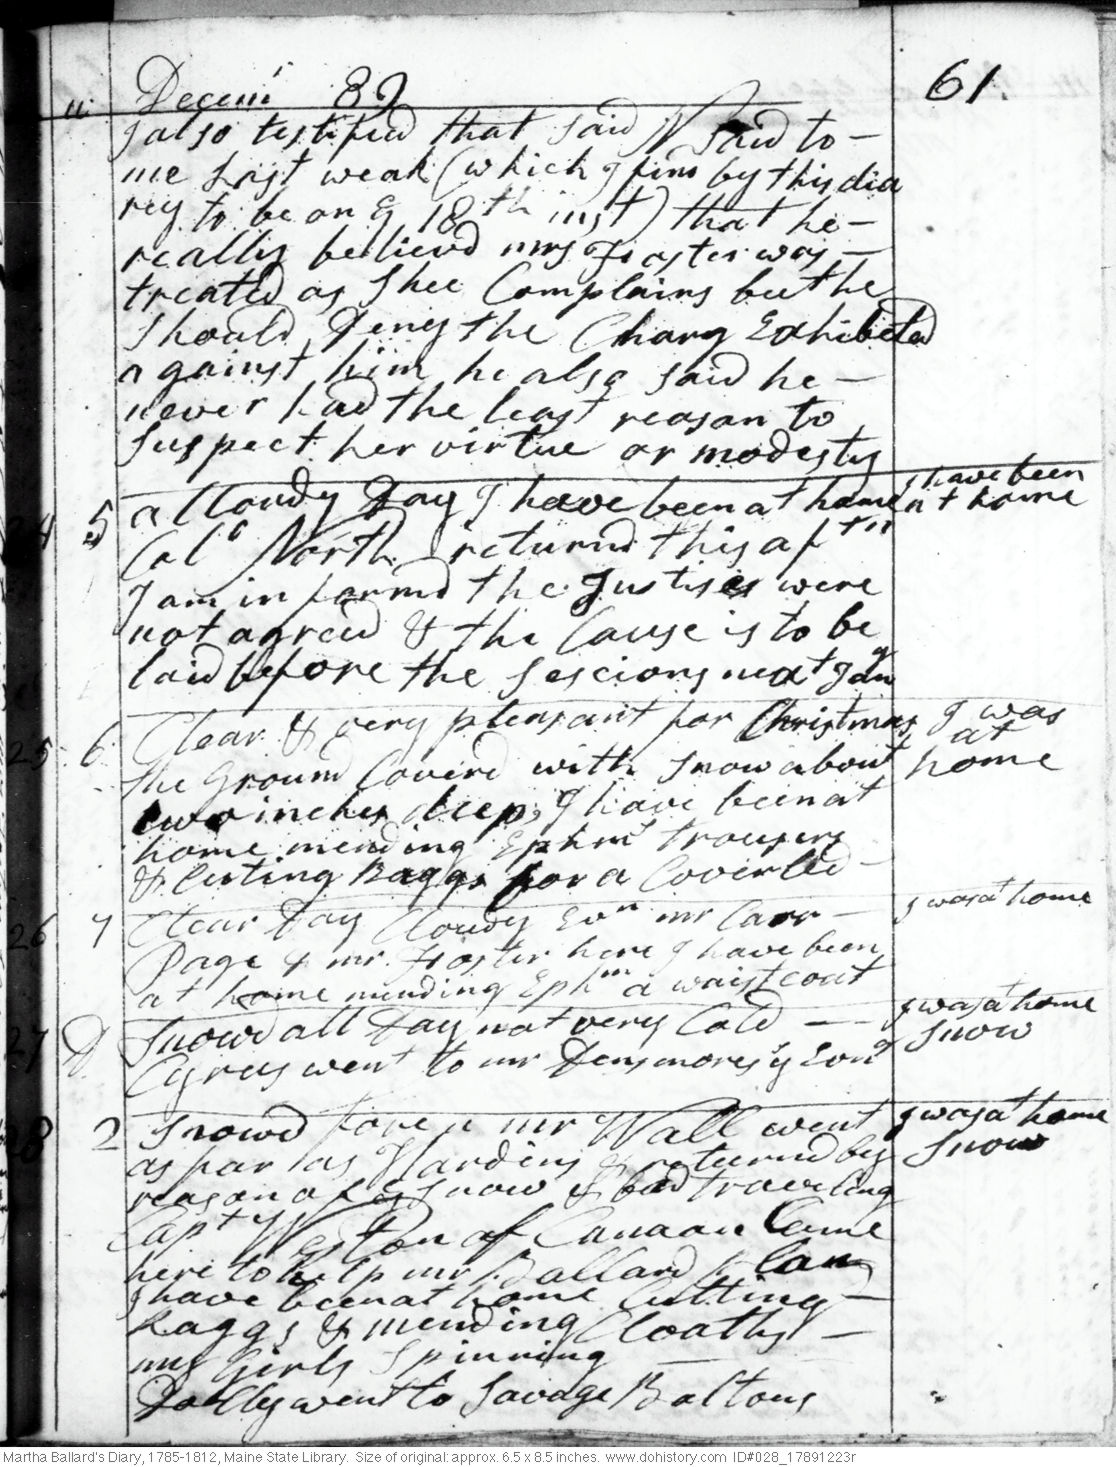 Decem 89
61
I also testified that said N said to -
me last weak (which I find by this dia
rey to be on ye 18th inst) that he -
really believd mrs Foster was -
treated as Shee Complains but he
should Deny the Charg Exhibeted
against him he also said he -
never had the least reason to
suspect her virtue or modesty
24 5 a Cloudy Day I have been at home
I have been
at home
Colo North returnd this aftn
I am informd the Justises were
not agreed & the Cause is to be
laid before the Sescions next Jan
25 6 Clear & very pleasant for Christmas
I was
at
home
the Ground Coverd with snow about
two inches deep, I have been at
home mending Ephms trousers
& Cuting Raggs for a Coverled
26 7 Clear Day Cloudy Evn mr Carr -
I was at home
Page & mr Foster here I have been
at home mending Ephm a waistcout
27 D Snowd all Day not very Cold - -
I was at home
Snow
Cyrus went to mr Densmores ys Evng
28 2 Snowd foren mr Wall went
I was at home
Snow
as far as Hardins & returnd by
reason of ye snow & bad traveling
Capt Weston of Canaan Came
here to help mr Ballard plan
I have been at home Cutting -
Raggs & mending Cloaths -
my Girls Spinning
Dolly went to Savage Boltons
Martha Ballard's Diary, 1785-1812, Maine State Library. Size of original: approx. 6.5 x 8.5 inches. www.dohistory.com ID#028_17891223r